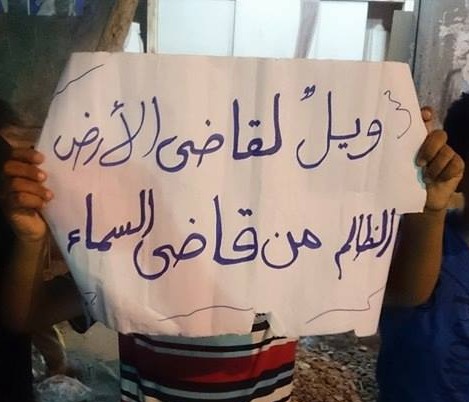 ويلٌ لقاضى الأرض
الظالم من قاضى السماء